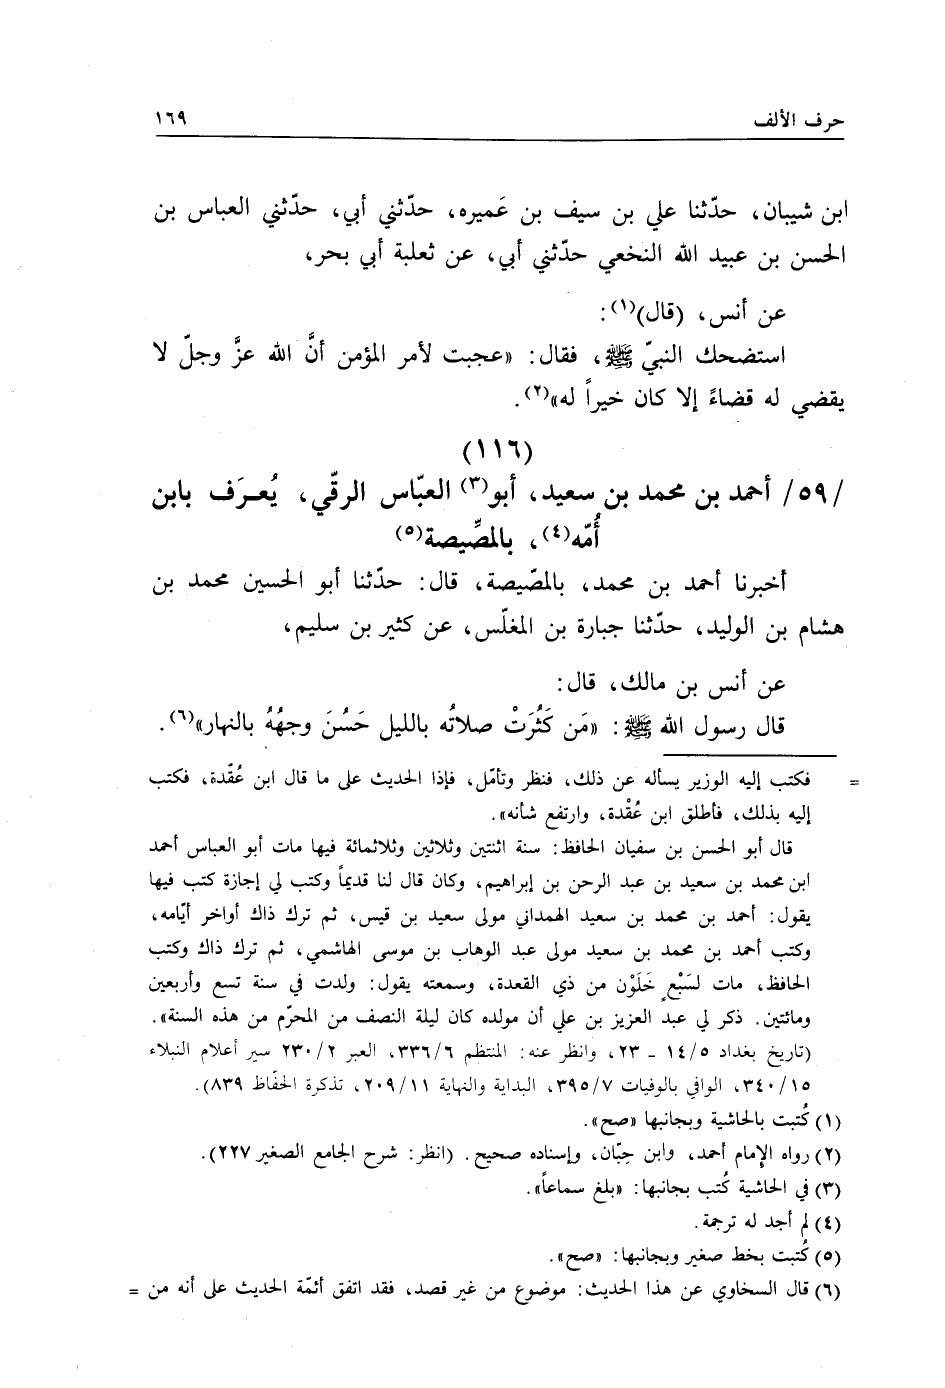 حرف الألف ١٦٩
ابن شيبان، حدّثنا علي بن سيف بن عَميره، حدّثني أبي، حدّثني العباس بن
الحسن بن عبيد الله النخعي حدّثني أبي، عن ثعلبة أبي بحر،
عن أنس، (قال)(١):
استضحك النبيّ ﷺ، فقال: «عجبت لأمر المؤمن أنَّ الله عزَّ وجلّ لا
يقضي له قضاءً إلا كان خيراً له»(٢).
(١١٦)
/٥٩/ أحمد بن محمد بن سعيد، أبو(٣) العبّاس الرقّي، يُعرَف بابن
أُمّه(٤)، بالمصِّيصة(٥)
أخبرنا أحمد بن محمد، بالمصّيصة، قال: حدّثنا أبو الحسين محمد بن
هشام بن الوليد، حدّثنا جبارة بن المغلّس، عن كثير بن سليم،
عن أنس بن مالك، قال:
قال رسول الله ﷺ: «مَن كَثُرَتْ صلاتُه بالليل حَسُنَ وجهُهُ بالنهار»(٦).
= فكتب إليه الوزير يسأله عن ذلك، فنظر وتأمّل، فإذا الحديث على ما قال ابن عُقّدة، فكتب
إليه بذلك، فأطلق ابن عُقْدة، وارتفع شأنه».
قال أبو الحسن بن سفيان الحافظ: سنة اثنتين وثلاثين وثلاثمائة فيها مات أبو العباس أحمد
ابن محمد بن سعيد بن عبد الرحمن بن إبراهيم، وكان قال لنا قديماً وكتب لي إجازة كتب فيها
يقول: أحمد بن محمد بن سعيد الهمداني مولى سعيد بن قيس، ثم ترك ذاك أواخر أيّامه،
وكتب أحمد بن محمد بن سعيد مولى عبد الوهاب بن موسى الهاشمي، ثم ترك ذاك وكتب
الحافظ، مات لسَبْعٍ خَلَوْن من ذي القعدة، وسمعته يقول: ولدت في سنة تسع وأربعين
ومائتين. ذكر لي عبد العزيز بن علي أن مولده كان ليلة النصف من المحرّم من هذه السنة».
(تاريخ بغداد ١٤/٥ ـ ٢٣، وانظر عنه: المنتظم ٣٣٦/٦، العبر ٢٣٠/٢ سير أعلام النبلاء
٣٤٠/١٥، الوافي بالوفيات ٣٩٥/٧، البداية والنهاية ٢٠٩/١١، تذكرة الحفّاظ ٨٣٩).
(١) كُتبت بالحاشية وبجانبها «صح».
(٢) رواه الإمام أحمد، وابن حِبّان، وإسناده صحيح. (انظر: شرح الجامع الصغير ٢٢٧).
(٣) في الحاشية كُتب بجانبها: «بلغ سماعاً».
(٤) لم أجد له ترجمة.
(٥) كُتبت بخط صغير وبجانبها: «صح».
(٦) قال السخاوي عن هذا الحديث: موضوع من غير قصد، فقد اتفق أئمّة الحديث على أنه من =